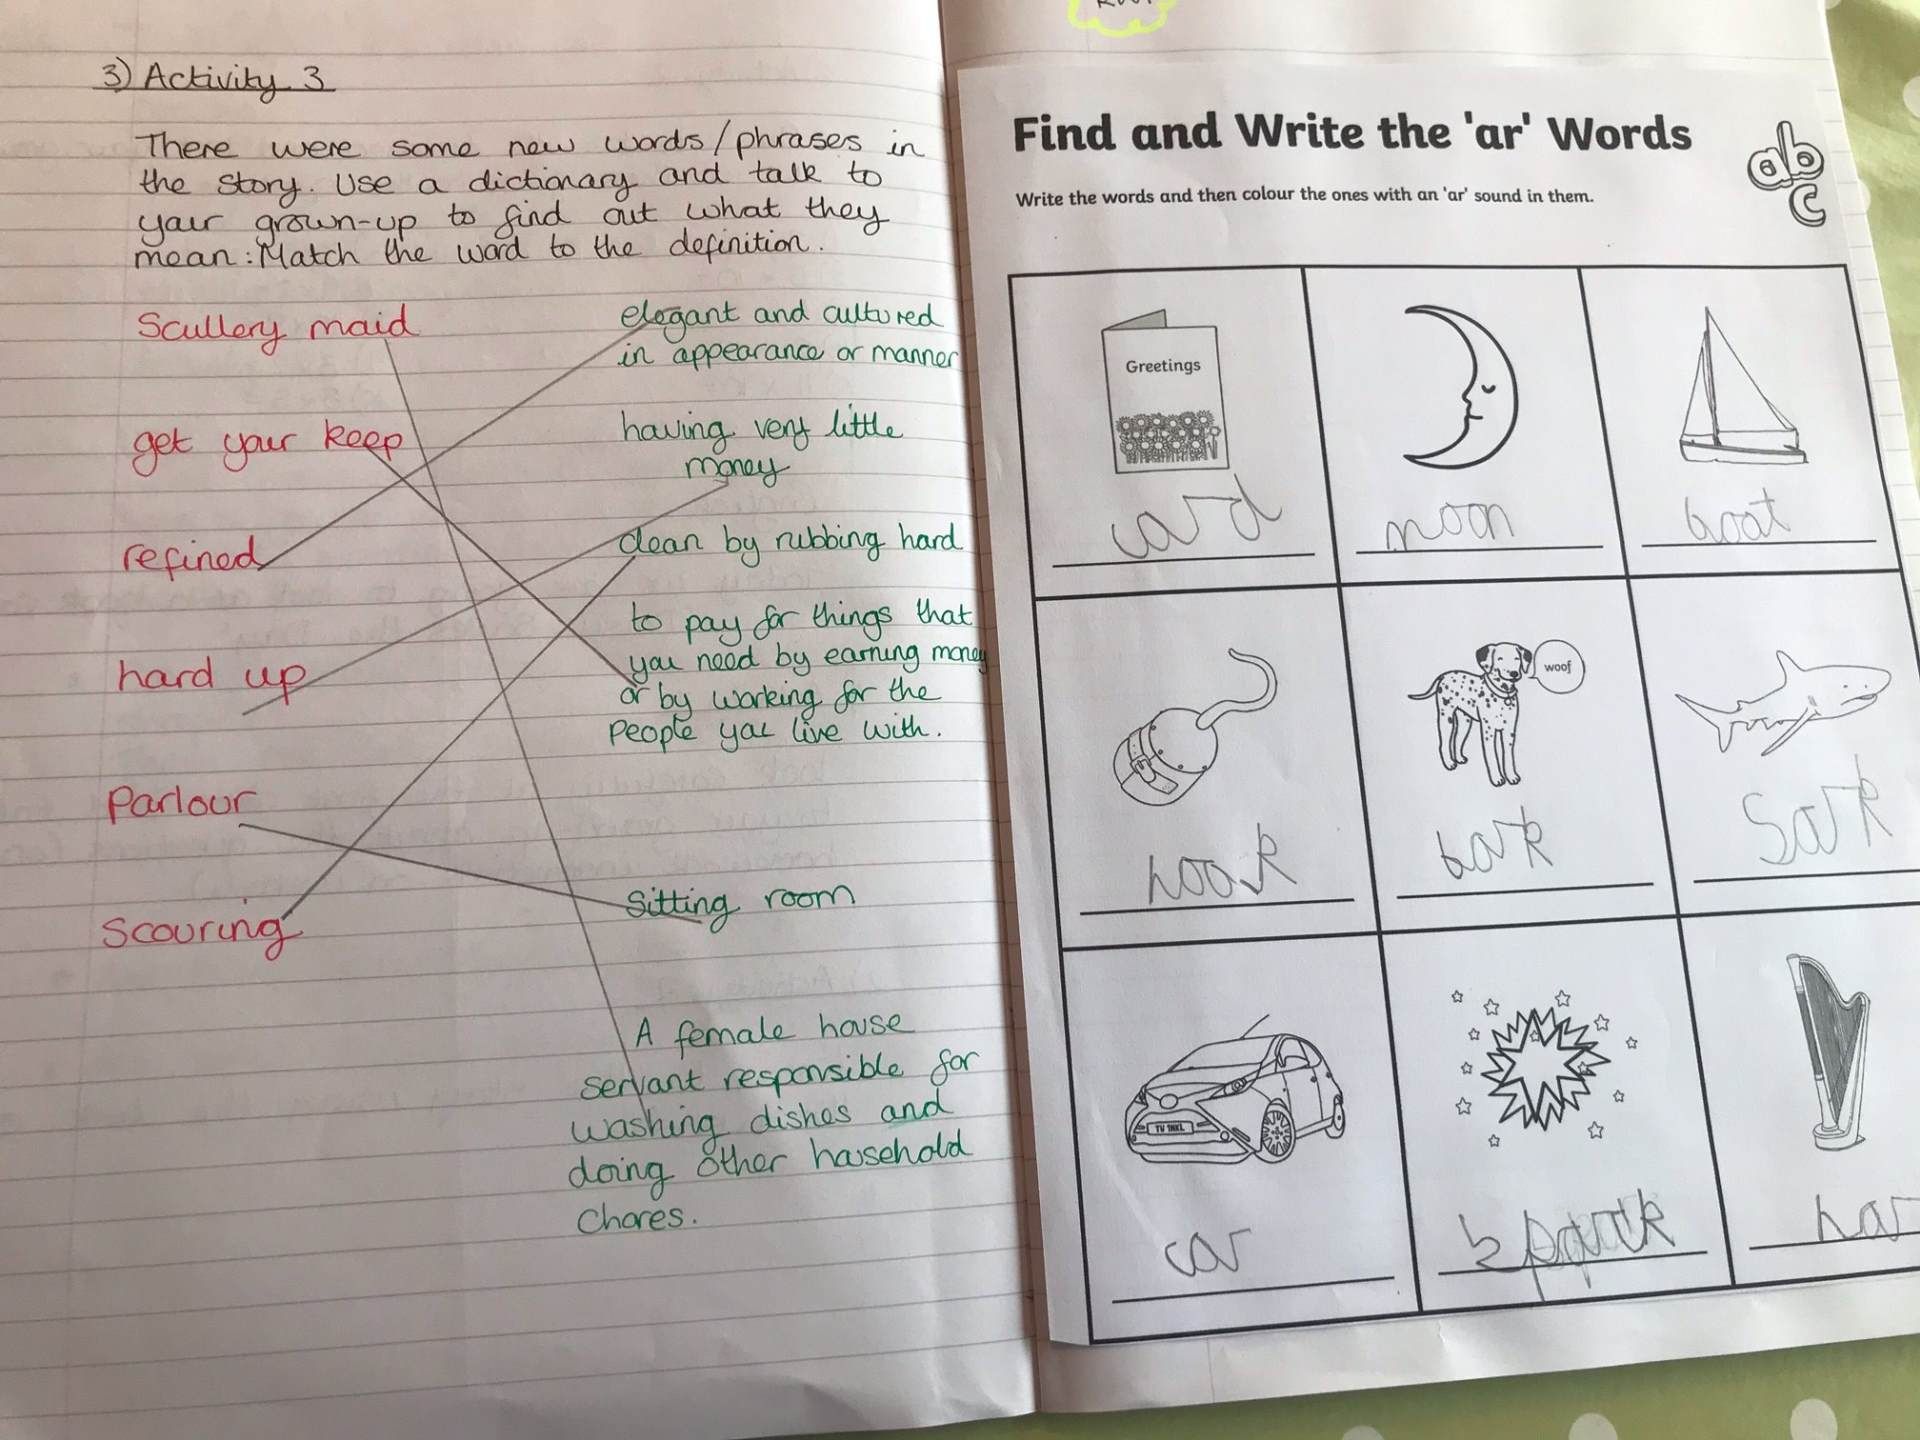 3) Activity 3
There were some new words/phrases in
the story. Use a dictionary and talk to
your grown-up to find out what they
mean: Match the word to the definition.
Scullery maid
get your keep
refined
hard up
Parlour
Scouring
elegant and cultured
in appearance or manner
having very little
money
clean by rubbing hard
to pay for things that
you need by earning money
or by working for the
people you live with.
Sitting room
A female house
servant responsible for
washing dishes and
doing other household
chores.
Find and Write the 'ar' Words
abc
Write the words and then colour the ones with an 'ar' sound in them.
Greetings
card
moon
boat
woof
hook
bark
Sark
TW INKL
car
spark
har